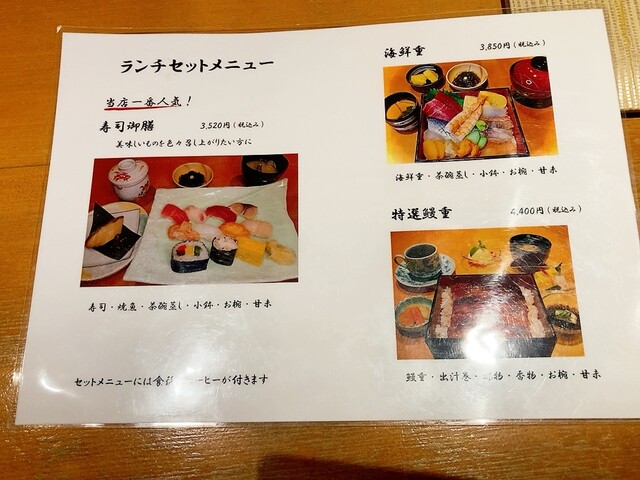 ランチセットメニュー
当店一番人気！
寿司御膳 3,520円(税込み)
美味しいものを色々召し上がりたい方に
寿司・焼魚・茶碗蒸し・小鉢・お椀・甘未
セットメニューには食 コーヒーが付きます
海鮮重 3,850円(税込み)
海鮮重・茶碗蒸し・小鉢・お椀・甘未
特選鰻重 4,400円(税込み)
鰻重・出汁巻・ 物・香物・お椀・甘未